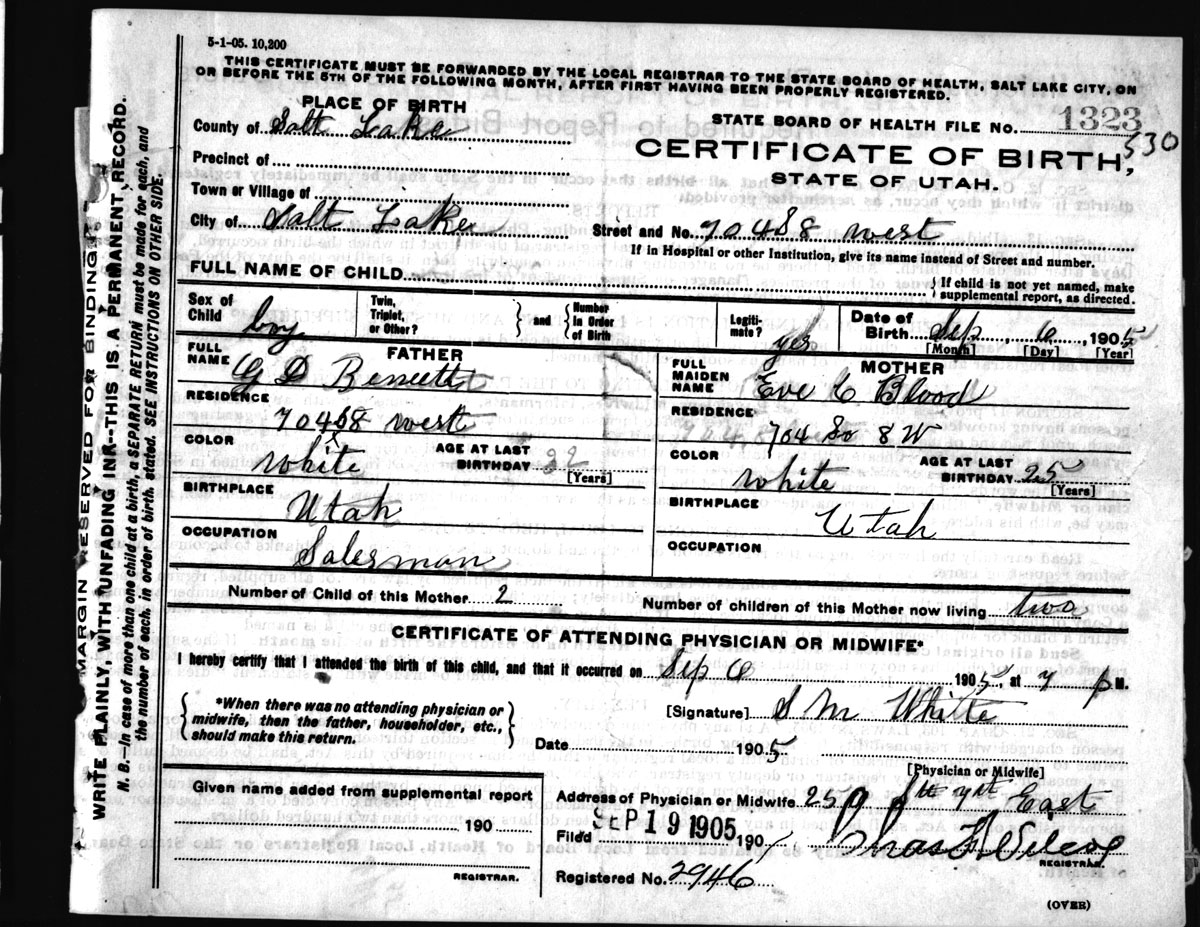 5-1-05. 10,200
THIS CERTIFICATE MUST BE FORWARDED BY THE LOCAL REGISTRAR TO THE STATE BOARD OF HEALTH, SALT LAKE CITY, ON
OR BEFORE THE 5TH OF THE FOLLOWING MONTH, AFTER FIRST HAVING BEEN PROPERLY REGISTERED.
MARGIN RESERVED FOR BINDING
WRITE PLAINLY, WITH UNFADING INK--THIS IS A PERMANENT RECORD.
N. B.--In case of more than one child at a birth, a SEPARATE RETURN must be made for each, and
the number of each, in order of birth, stated. SEE INSTRUCTIONS ON OTHER SIDE.
PLACE OF BIRTH
County of Salt Lake
Precinct of
Town or Village of
City of Salt Lake
STATE BOARD OF HEALTH FILE NO. 1323
530
CERTIFICATE OF BIRTH,
STATE OF UTAH.
Street and No. 704 S 8 west
If in Hospital or other Institution, give its name instead of Street and number.
FULL NAME OF CHILD
If child is not yet named, make
supplemental report, as directed.
Sex of Child boy
Twin, Triplet, or Other?
and
Number in Order of Birth
Legitimate? yes
Date of Birth Sep 6, 1905
[Month] [Day] [Year]
FATHER
FULL NAME G D Bennett
RESIDENCE
704 S 8 west
COLOR white
AGE AT LAST BIRTHDAY 32
[Years]
BIRTHPLACE
Utah
OCCUPATION
Salesman
MOTHER
FULL MAIDEN NAME Eve C Blood
RESIDENCE
704 So 8 W
COLOR white
AGE AT LAST BIRTHDAY 25
[Years]
BIRTHPLACE
Utah
OCCUPATION
Number of Child of this Mother 2
Number of children of this Mother now living two
CERTIFICATE OF ATTENDING PHYSICIAN OR MIDWIFE*
I hereby certify that I attended the birth of this child, and that it occurred on Sep 6 1905, at 7 p M.
*When there was no attending physician or
midwife, then the father, householder, etc.,
should make this return.
[Signature] S M White
Date 1905
[Physician or Midwife]
Given name added from supplemental report
190
REGISTRAR.
Address of Physician or Midwife 259 So 7th East
Filed SEP 19 1905 190
REGISTRAR.
Registered No. 2946
(OVER)